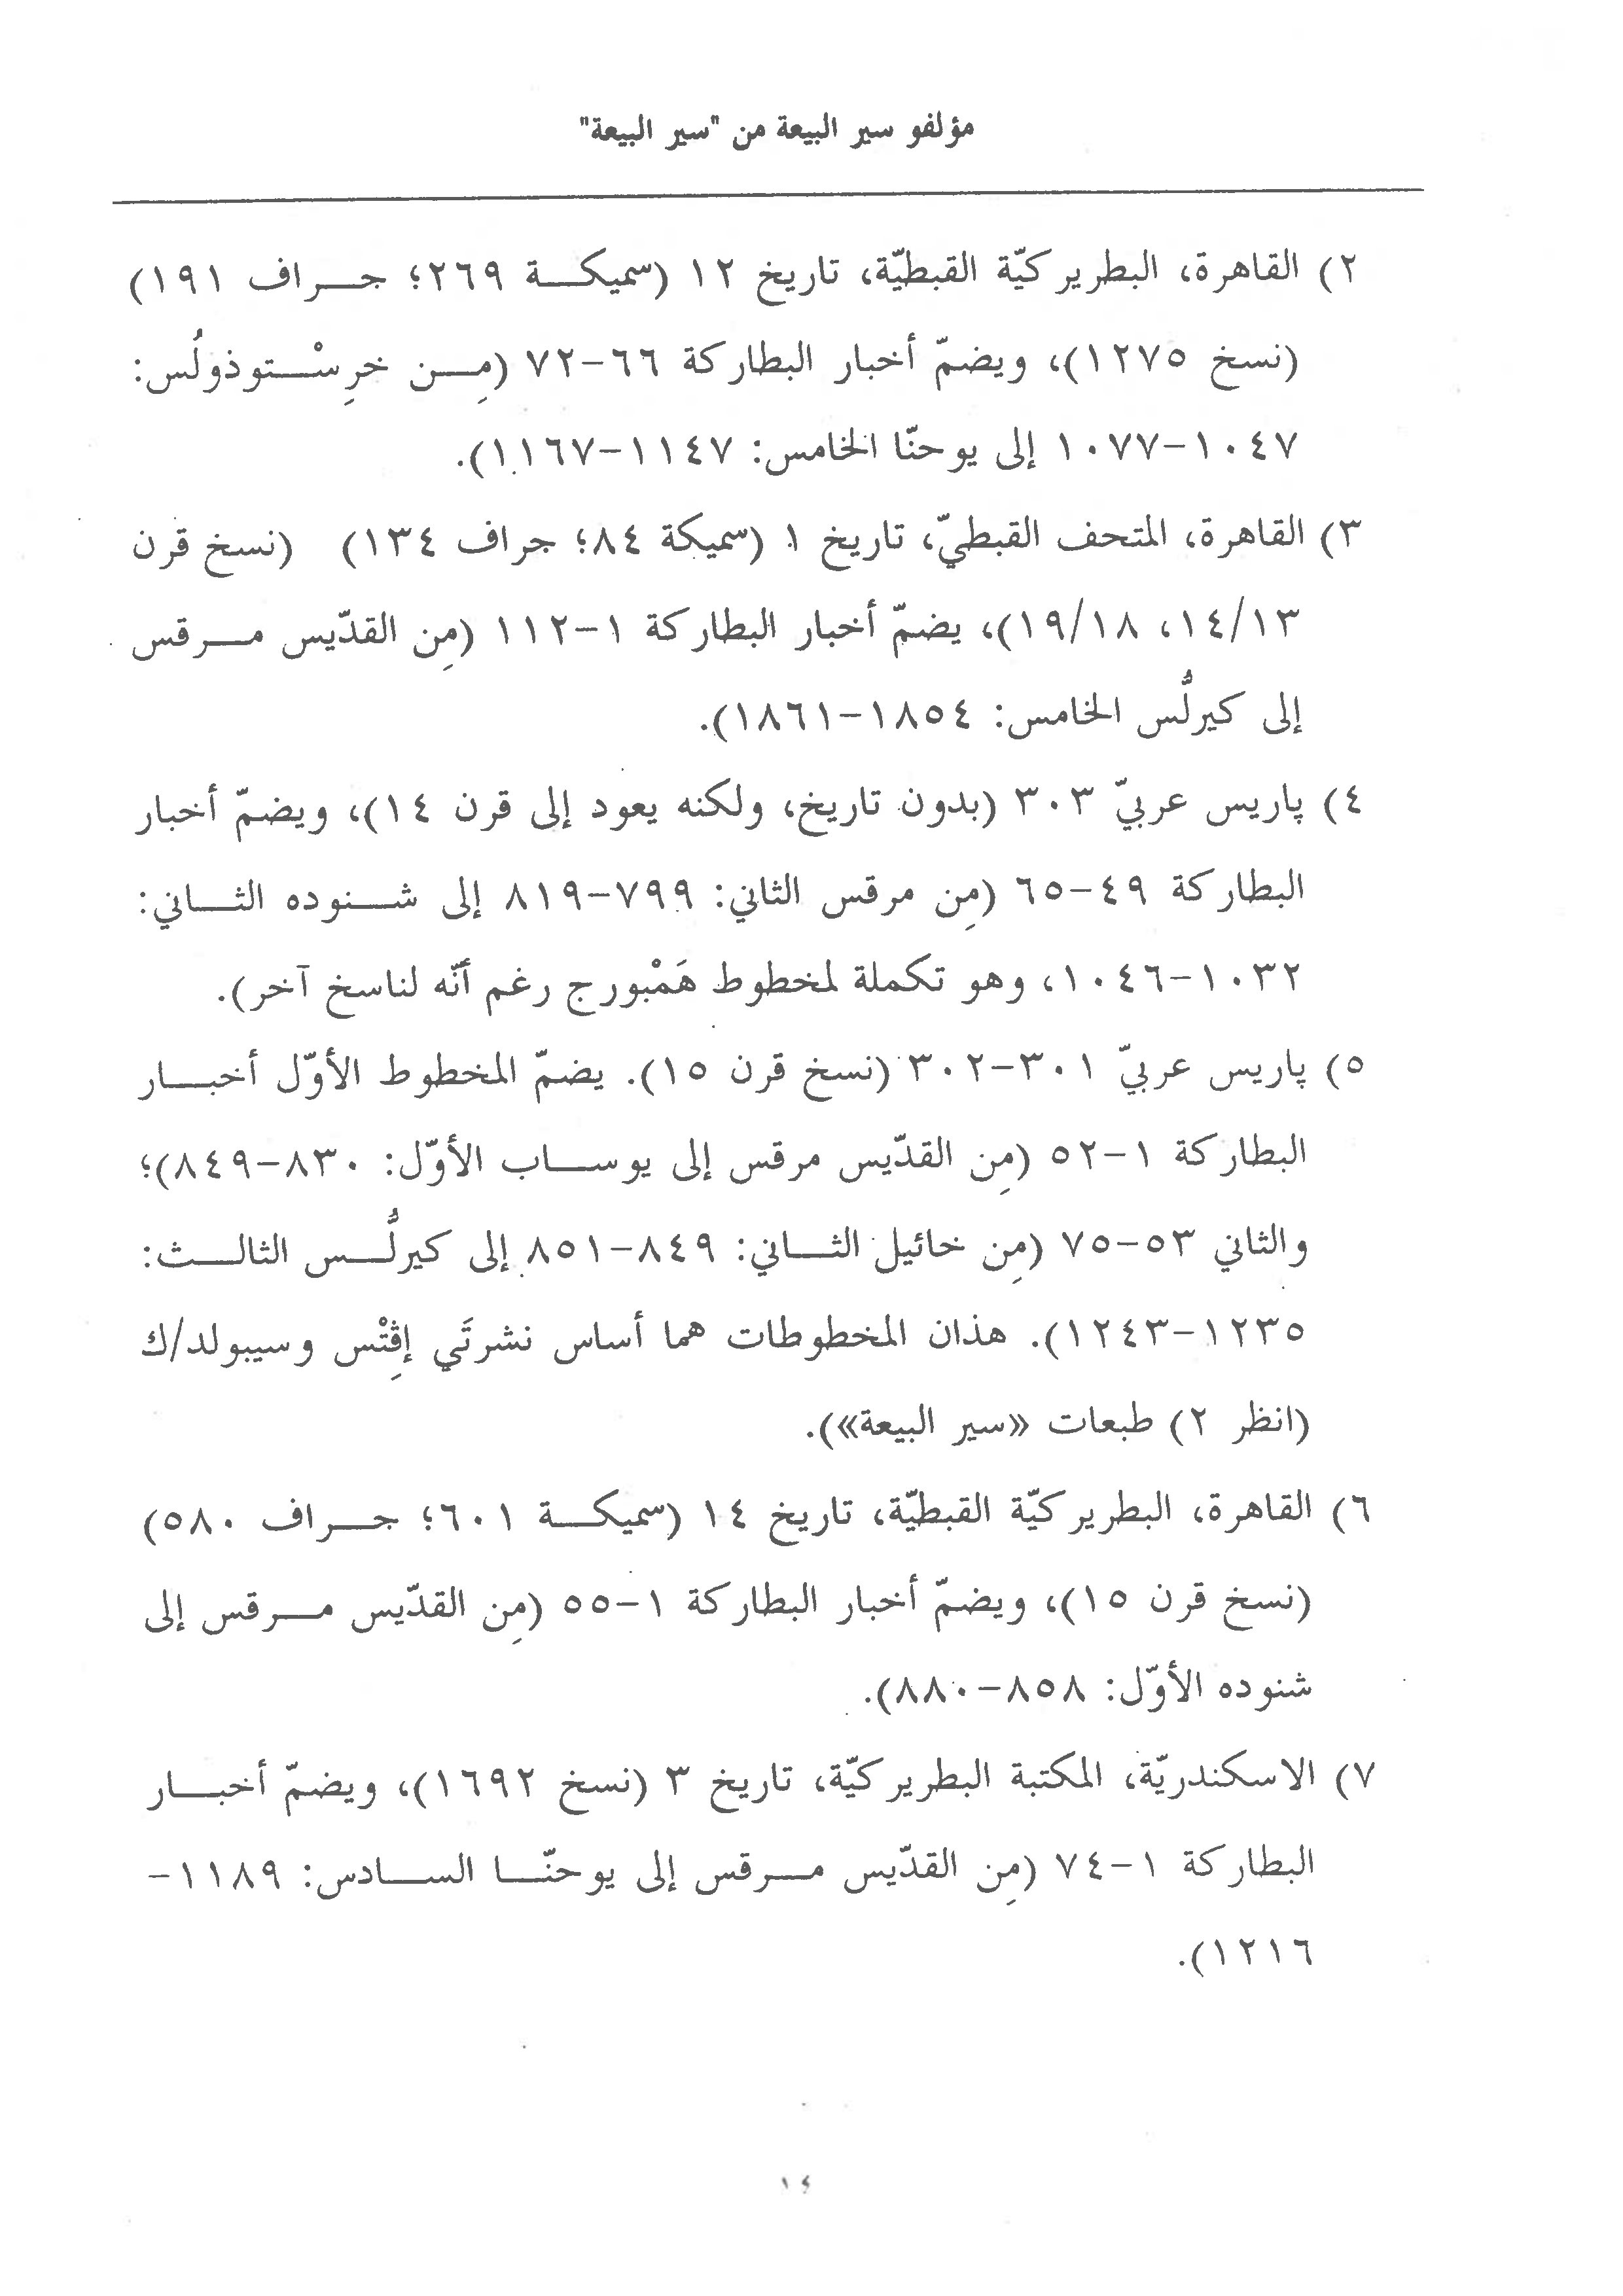 مؤلفو سير البيعة من "سير البيعة"
٢) القاهرة، البطريركيّة القبطيّة، تاريخ ١٢ (سميكة ٢٦٩؛ جراف ١٩١)
(نسخ ١٢٧٥)، ويضمّ أخبار البطاركة ٦٦-٧٢ (مِن خرِسْتوذولُس:
١٠٤٧-١٠٧٧ إلى يوحنّا الخامس: ١١٤٧-١١٦٧).
٣) القاهرة، المتحف القبطيّ، تاريخ ١ (سميكة ٨٤؛ جراف ١٣٤) (نسخ قرن
١٤/١٣، ١٩/١٨)، يضمّ أخبار البطاركة ١-١١٢ (مِن القدّيس مرقس
إلى كيرلُّس الخامس: ١٨٥٤-١٨٦١).
٤) پاريس عربيّ ٣٠٣ (بدون تاريخ، ولكنه يعود إلى قرن ١٤)، ويضمّ أخبار
البطاركة ٤٩-٦٥ (مِن مرقس الثاني: ٧٩٩-٨١٩ إلى شنوده الثاني:
١٠٣٢-١٠٤٦، وهو تكملة لمخطوط هَمْبورج رغم أنّه لناسخ آخر).
٥) پاريس عربيّ ٣٠١-٣٠٢ (نسخ قرن ١٥). يضمّ المخطوط الأوّل أخبار
البطاركة ١-٥٢ (مِن القدّيس مرقس إلى يوساب الأوّل: ٨٣٠-٨٤٩)؛
والثاني ٥٣-٧٥ (مِن خائيل الثاني: ٨٤٩-٨٥١ إلى كيرلُّس الثالث:
١٢٣٥-١٢٤٣). هذان المخطوطات هما أساس نشرتَي إڤِتْس وسيبولد/ك
(انظر ٢) طبعات «سير البيعة»).
٦) القاهرة، البطريركيّة القبطيّة، تاريخ ١٤ (سميكة ٦٠١؛ جراف ٥٨٠)
(نسخ قرن ١٥)، ويضمّ أخبار البطاركة ١-٥٥ (مِن القدّيس مرقس إلى
شنوده الأوّل: ٨٥٨-٨٨٠).
٧) الاسكندريّة، المكتبة البطريركيّة، تاريخ ٣ (نسخ ١٦٩٢)، ويضمّ أخبار
البطاركة ١-٧٤ (مِن القدّيس مرقس إلى يوحنّا السادس: ١١٨٩-
١٢١٦).
١٤